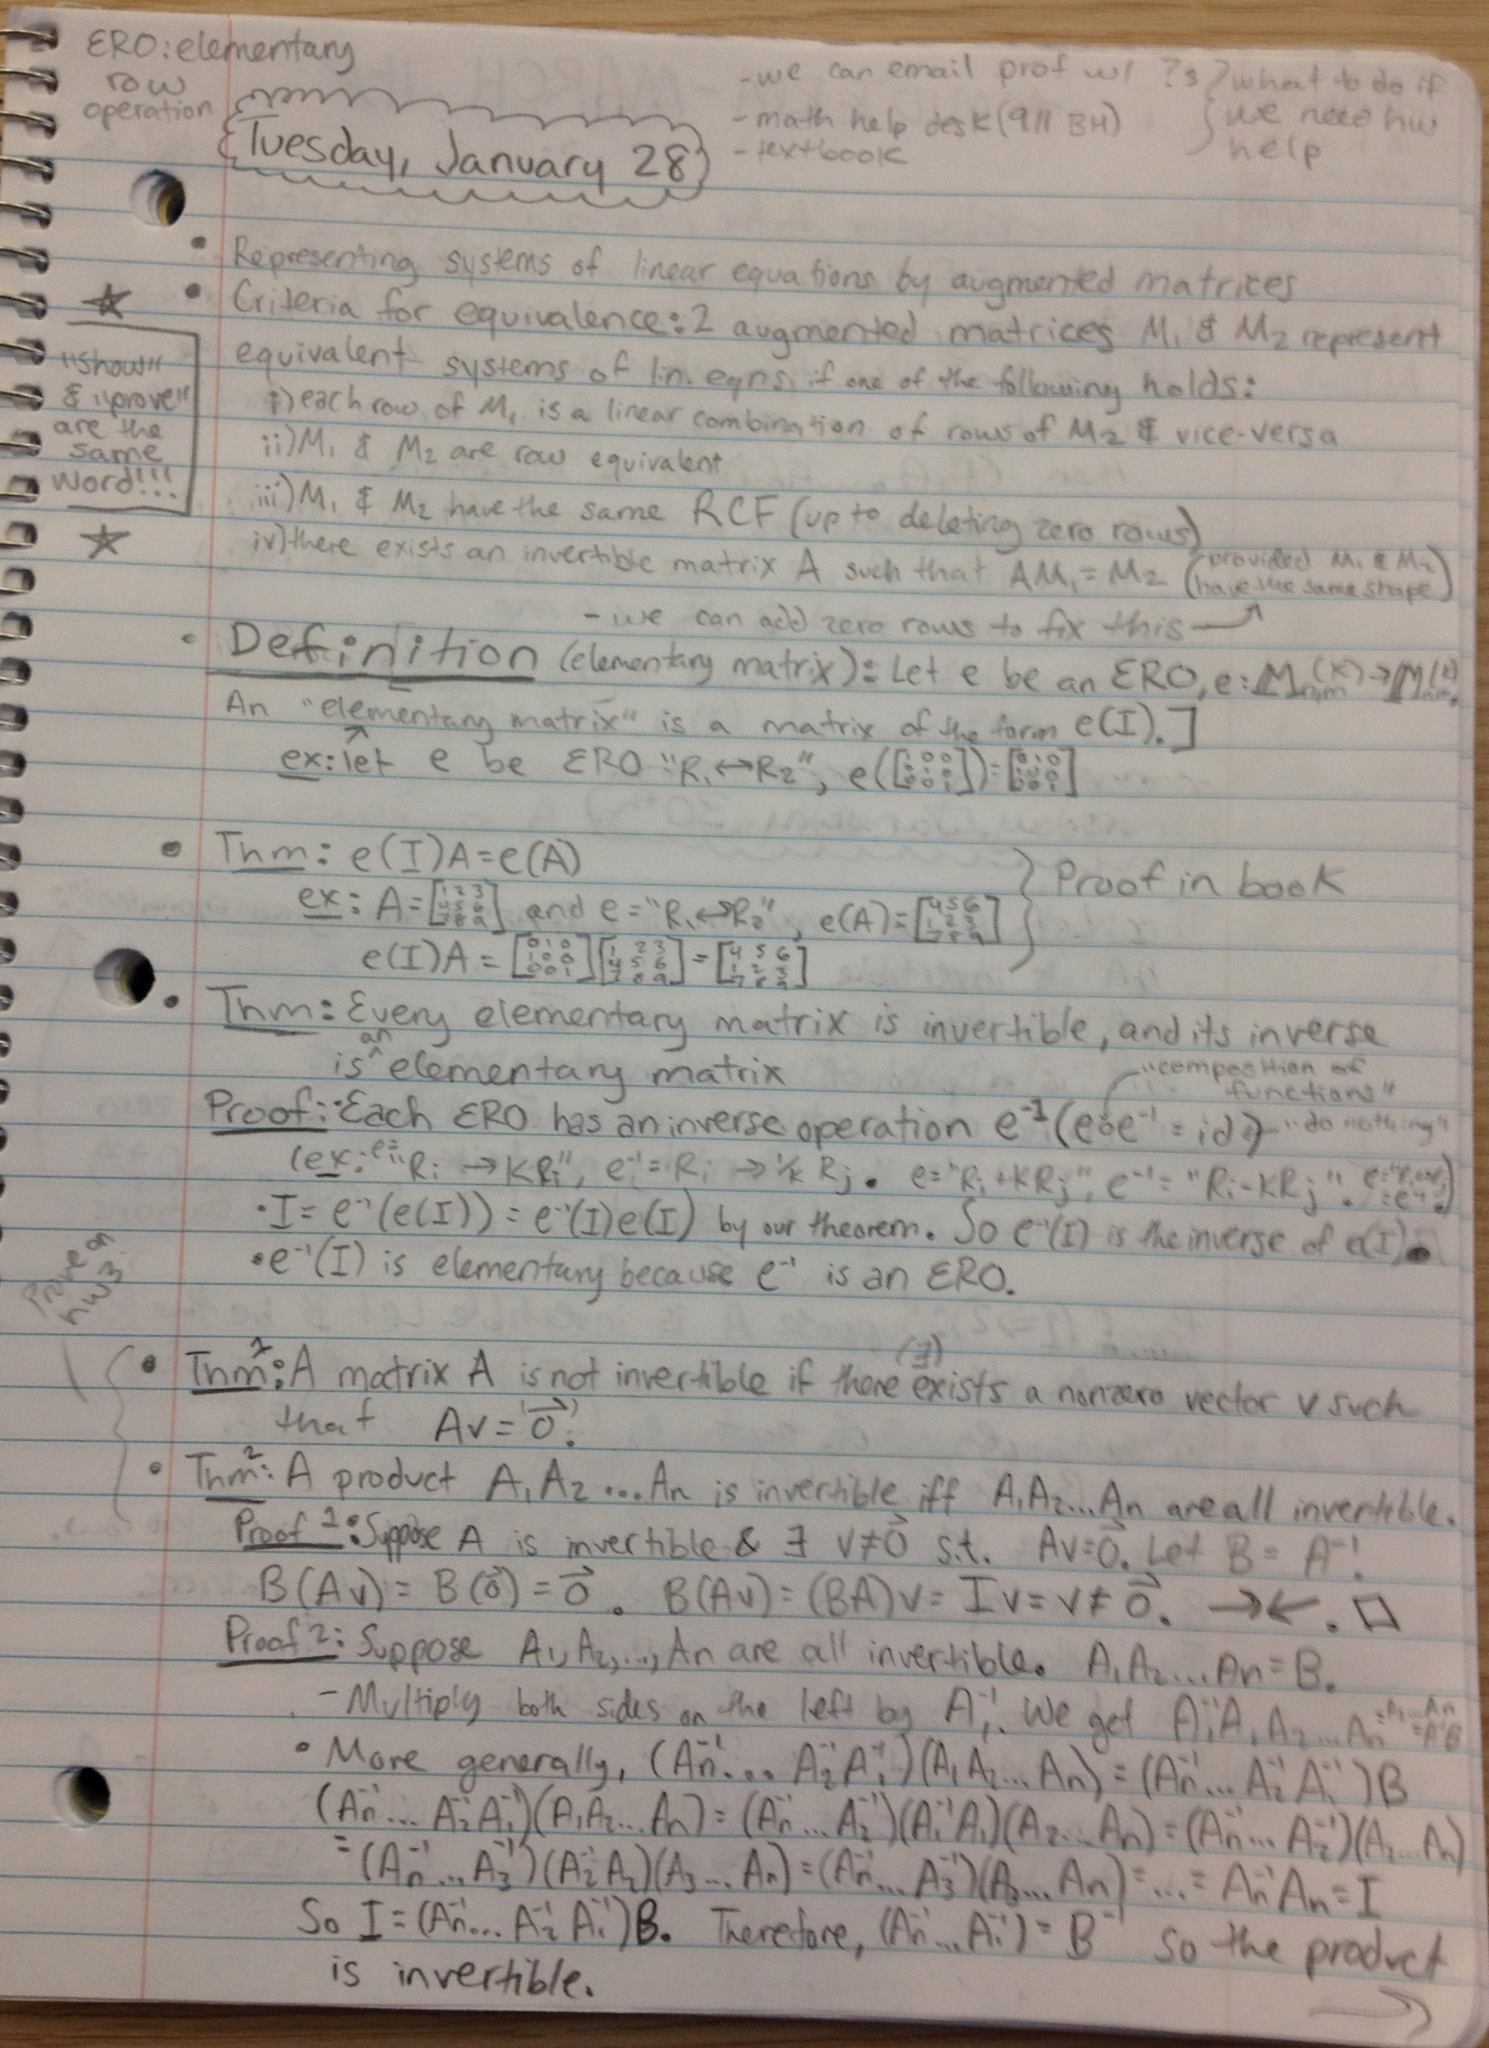 ERO: elementary
row
operation
Tuesday, January 28
-we can email prof w/ ?s
-math help desk (911 BH)
-textbook
what to do if
we need hw
help
• Representing systems of linear equations by augmented matrices
• Criteria for equivalence: 2 augmented matrices M₁ & M₂ represent
equivalent systems of lin. eqns. if one of the following holds:
i) each row of M₁ is a linear combination of rows of M₂ & vice-versa
ii) M₁ & M₂ are row equivalent
iii) M₁ & M₂ have the same RCF (up to deleting zero rows)
iv) there exists an invertible matrix A such that AM₁ = M₂ (provided M₁ & M₂
have the same shape)
- we can add zero rows to fix this →
☆
"Show"
& "prove"
are the
same
word!!!
☆
• Definition (elementary matrix): Let e be an ERO, e: Mₙₘ(K) → Mₙₘ(K).
An "elementary matrix" is a matrix of the form e(I). ]
ex: let e be ERO "R₁ ↔ R₂", e([1 0 0; 0 1 0; 0 0 1]) = [0 1 0; 1 0 0; 0 0 1]
• Thm: e(I)A = e(A)
ex: A = [1 2 3; 4 5 6; 7 8 9] and e = "R₁ ↔ R₂", e(A) = [4 5 6; 1 2 3; 7 8 9]
e(I)A = [0 1 0; 1 0 0; 0 0 1] [1 2 3; 4 5 6; 7 8 9] = [4 5 6; 1 2 3; 7 8 9]
} Proof in book
• Thm: Every elementary matrix is invertible, and its inverse
is an elementary matrix
"composition of
functions"
Proof: • Each ERO has an inverse operation e⁻¹ (e∘e⁻¹ = id) "do nothing"
(ex: e = "Rᵢ → KRᵢ", e⁻¹ = Rᵢ → 1/K Rⱼ. e = "Rᵢ + KRⱼ", e⁻¹ = "Rᵢ - KRⱼ". e = "Rᵢ ↔ Rⱼ" = e⁻¹.)
• I = e⁻¹(e(I)) = e⁻¹(I)e(I) by our theorem. So e⁻¹(I) is the inverse of e(I).
• e⁻¹(I) is elementary because e⁻¹ is an ERO.
Prove on
hw 3
• Thm¹: A matrix A is not invertible if there (∃) exists a nonzero vector v such
that Av = (0⃗).
• Thm²: A product A₁A₂...Aₙ is invertible iff A₁A₂...Aₙ are all invertible.
Proof 1: Suppose A is invertible & ∃ v≠0⃗ s.t. Av=0⃗. Let B = A⁻¹.
B(Av) = B(0⃗) = 0⃗. B(Av) = (BA)v = Iv = v ≠ 0⃗. →←. □
Proof 2: Suppose A₁, A₂, ..., Aₙ are all invertible. A₁A₂...Aₙ = B.
- Multiply both sides on the left by A₁⁻¹. We get A₁⁻¹A₁A₂...Aₙ = A₂...Aₙ = A₁⁻¹B
• More generally, (Aₙ⁻¹...A₂⁻¹A₁⁻¹)(A₁A₂...Aₙ) = (Aₙ⁻¹...A₂⁻¹A₁⁻¹)B
(Aₙ⁻¹...A₂⁻¹A₁⁻¹)(A₁A₂...Aₙ) = (Aₙ⁻¹...A₂⁻¹)(A₁⁻¹A₁)(A₂...Aₙ) = (Aₙ⁻¹...A₂⁻¹)(A₂...Aₙ)
= (Aₙ⁻¹...A₃⁻¹)(A₂⁻¹A₂)(A₃...Aₙ) = (Aₙ⁻¹...A₃⁻¹)(A₃...Aₙ) = ... = Aₙ⁻¹Aₙ = I
So I = (Aₙ⁻¹...A₂⁻¹A₁⁻¹)B. Therefore, (Aₙ⁻¹...A₁⁻¹) = B⁻¹ so the product
is invertible.
→